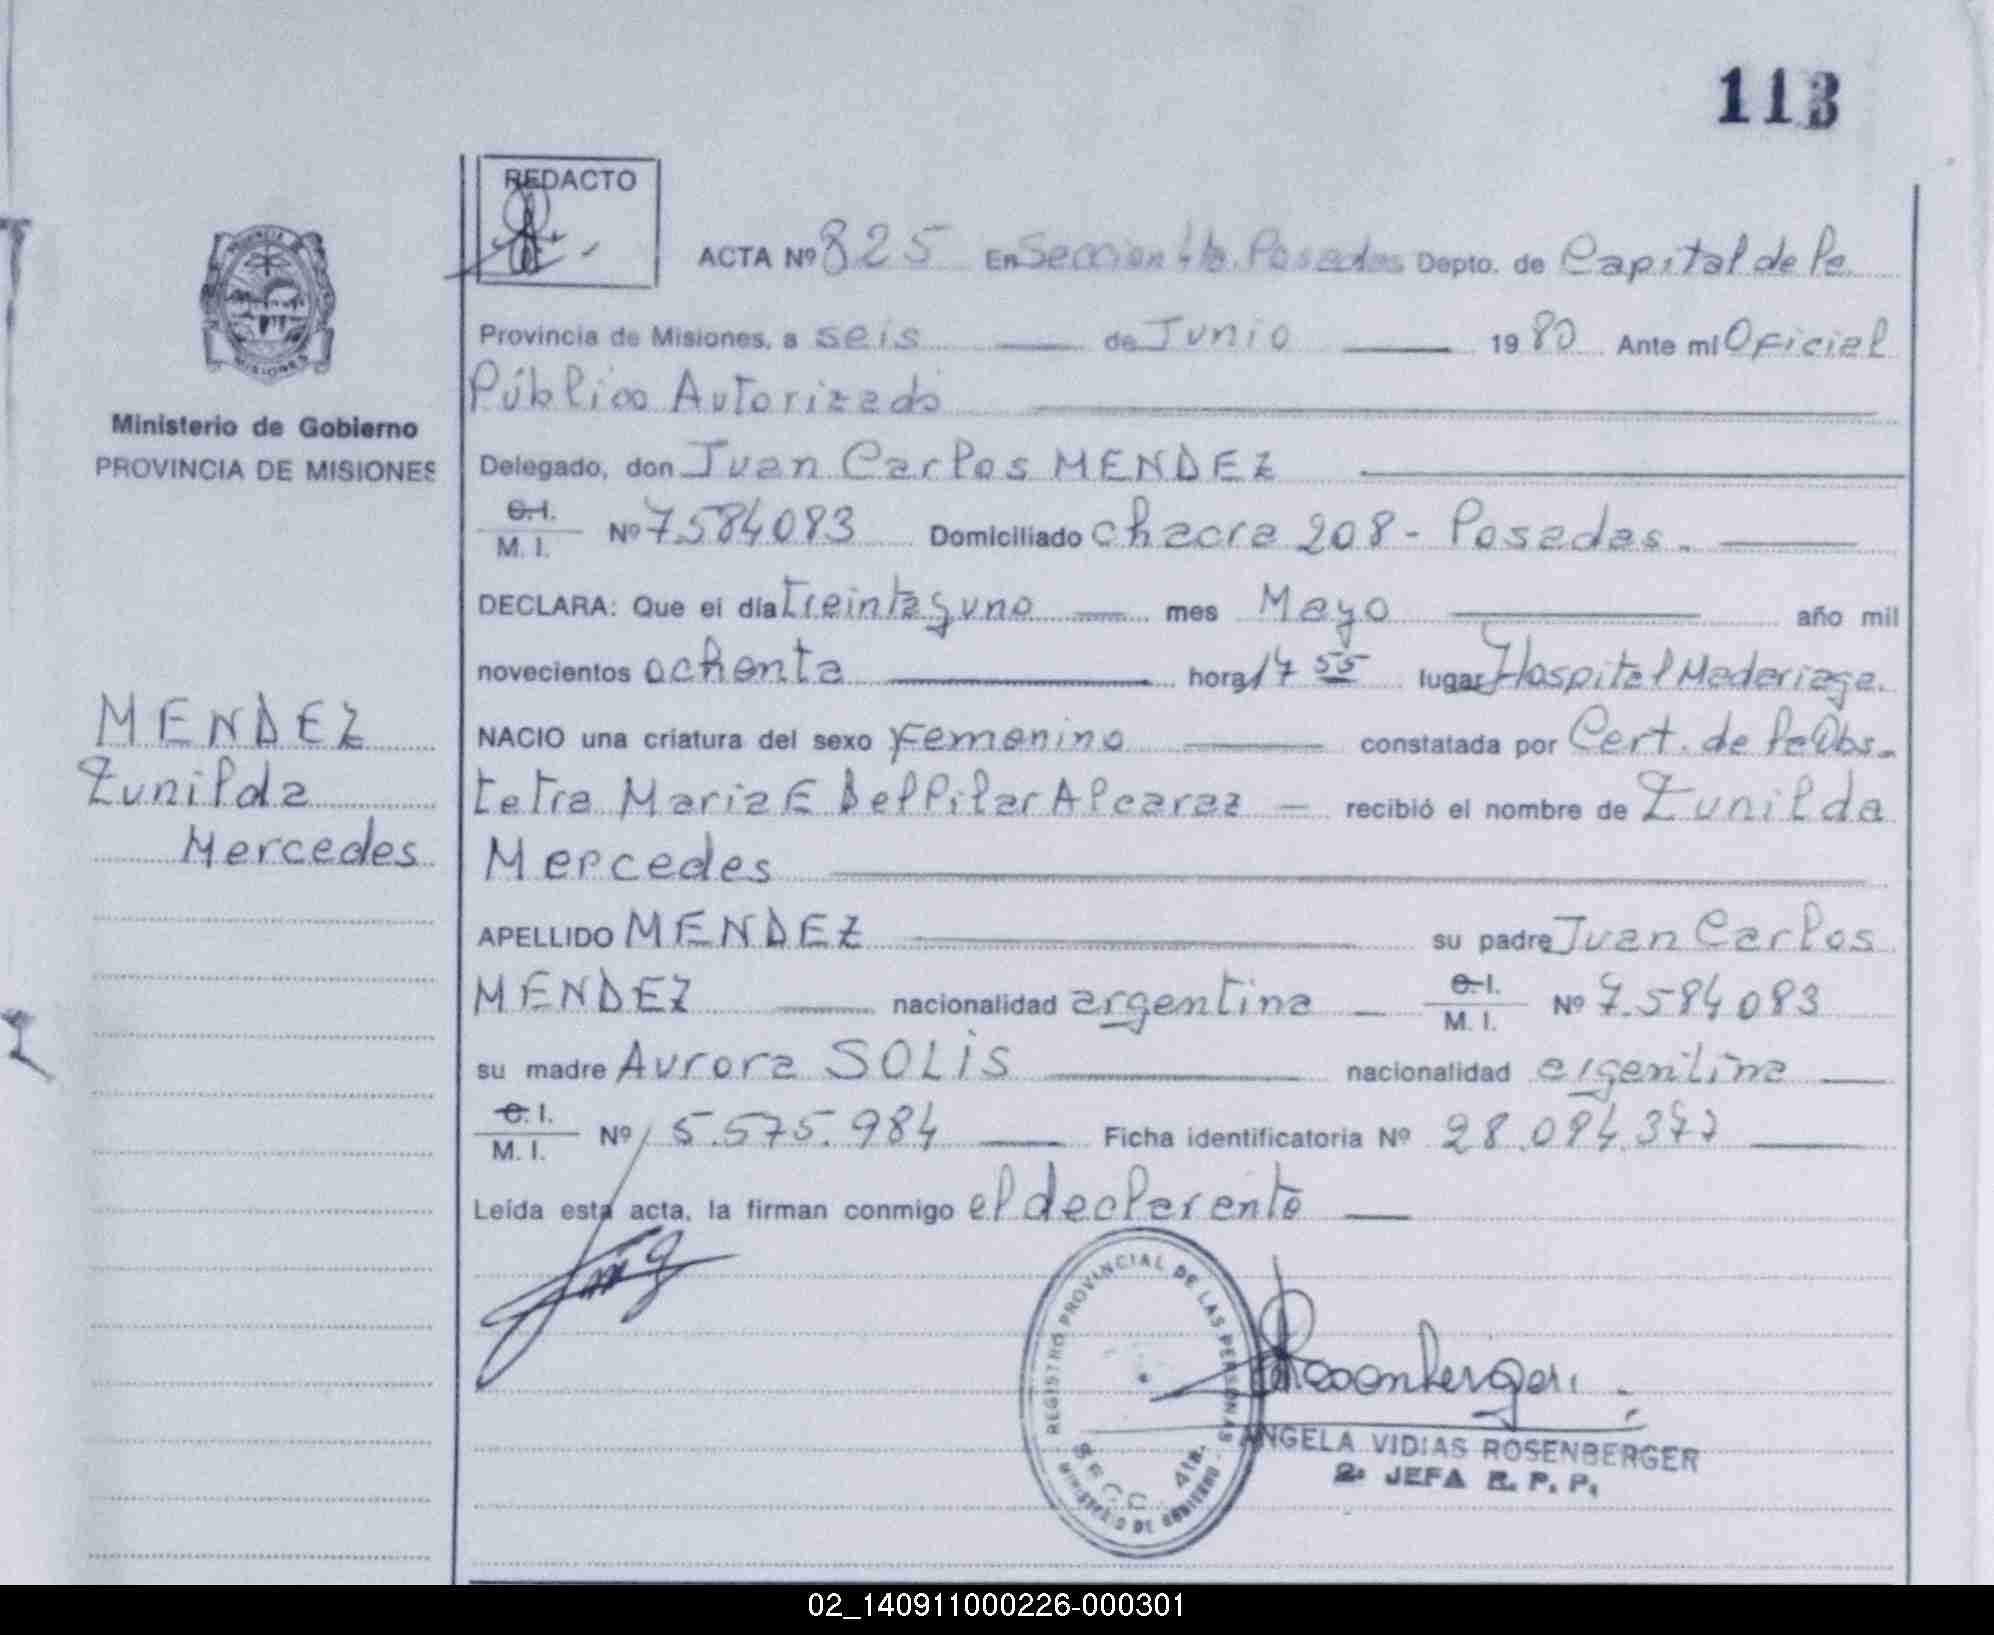 113
REDACTO
ACTA Nº 825 En Seccion 4ta. Posadas Depto. de Capital de la
Provincia de Misiones, a seis de Junio 1980 Ante mí Oficial
Público Autorizado
Ministerio de Gobierno
PROVINCIA DE MISIONES
Delegado, don Juan Carlos MENDEZ
C.I. M.I. Nº 7584083 Domiciliado chacra 208 - Posadas.
DECLARA: Que el día treinta y uno mes Mayo año mil
novecientos ochenta hora 17 55 lugar Hospital Madariaga.
MENDEZ
Zunilda
Mercedes
NACIO una criatura del sexo Femenino constatada por Cert. de la Obs-
tetra Maria E Del Pilar Alcaraz recibió el nombre de Zunilda
Mercedes
APELLIDO MENDEZ su padre Juan Carlos
MENDEZ nacionalidad argentina C.I. M.I. Nº 7.584083
su madre Aurora SOLIS nacionalidad argentina
C.I. M.I. Nº 5.575.984 Ficha identificatoria Nº 28.094.377
Leída esta acta, la firman conmigo el declarante
REGISTRO PROVINCIAL DE LAS PERSONAS
SECC. 4ta.
MINISTERIO DE GOBIERNO
Rosenberger
ANGELA VIDIAS ROSENBERGER
2ª JEFA R. P. P.
02_140911000226-000301